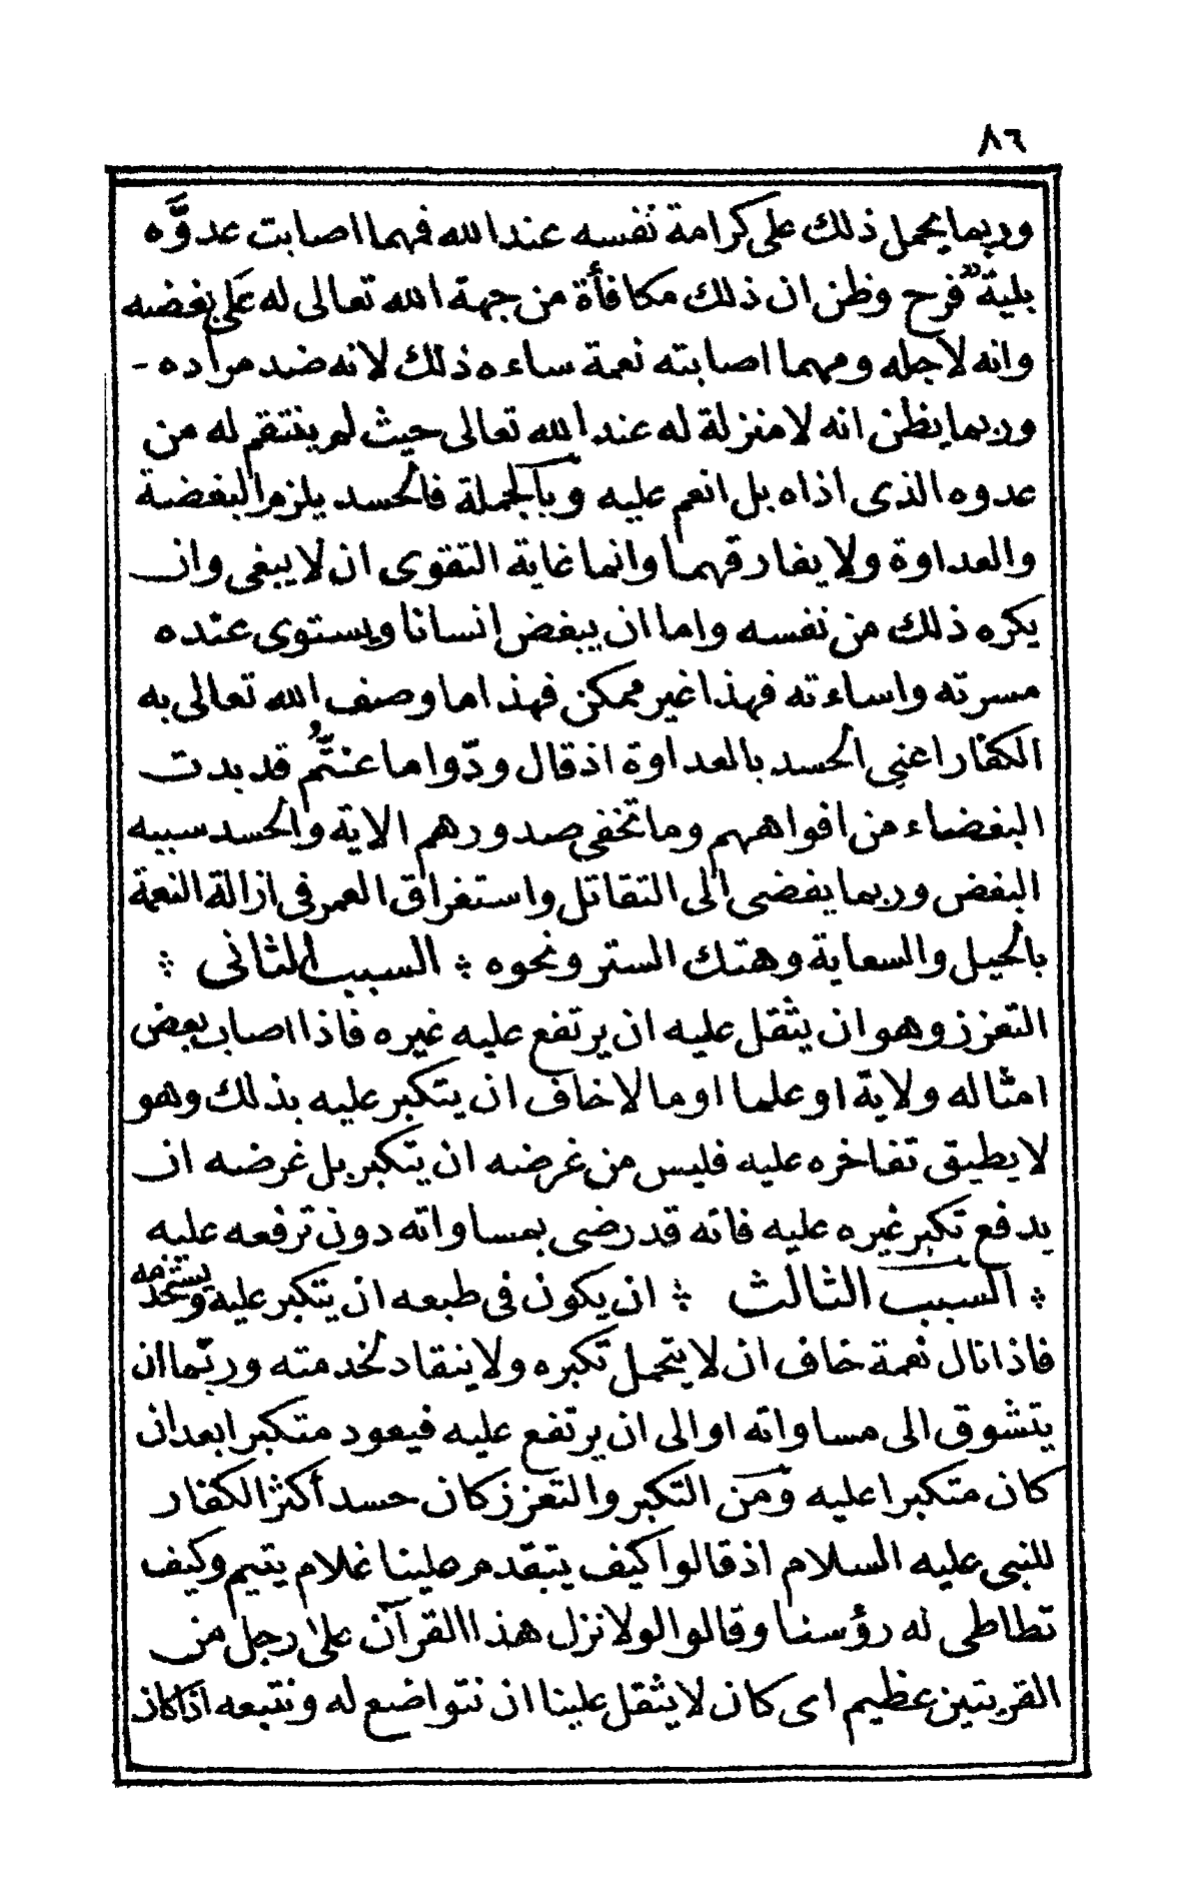 ٨٦
وربما يحمل ذلك على كرامة نفسه عند الله فمهما اصابت عدوَّه
بلية فرح وظن ان ذلك مكافأة من جهة الله تعالى له على بغضه
وانه لاجله ومهما اصابته نعمة ساءه ذلك لانه ضد مراده -
وربما يظن انه لا منزلة له عند الله تعالى حيث لم ينتقم له من
عدوه الذى اذاه بل انعم عليه وبالجملة فالحسد يلزم البغضة
والعداوة ولا يفارقهما وانما غاية التقوى ان لا يبغى وان
يكره ذلك من نفسه واما ان يبغض إنسانا ويستوى عنده
مسرته واساءته فهذا غير ممكن فهذا ما وصف الله تعالى به
الكفار اعنى الحسد بالعداوة اذ قال ودّوا ما عنتُّم قد بدت
البغضاء من افواههم وما تخفى صدورهم الاية والحسد سببه
البغض وربما يفضى الى التقاتل واستغراق العمر فى ازالة النعمة
بالحيل والسعاية وهتك الستر ونحوه ؞ السبب الثانى ؞
التعزز وهو ان يثقل عليه ان يرتفع عليه غيره فاذا اصاب بعض
امثاله ولاية او علما او مالا خاف ان يتكبر عليه بذلك وهو
لا يطيق تفاخره عليه فليس من غرضه ان يتكبر بل غرضه ان
يدفع تكبر غيره عليه فانه قد رضى بمساواته دون ترفعه عليه
؞ السبب الثالث ؞ ان يكون فى طبعه ان يتكبر عليه ويستخدمه
فاذا نال نعمة خاف ان لا يتحمل تكبره ولا ينقاد لخدمته وربّما ان
يتشوق الى مساواته او الى ان يرتفع عليه فيعود متكبرا بعد ان
كان متكبرا عليه ومن التكبر والتعزز كان حسد أكثر الكفار
للنبى عليه السلام اذ قالوا كيف يتقدم علينا غلام يتيم وكيف
تطاطى له رؤسنا وقالوا لولا نزل هذا القرآن على رجل من
القريتين عظيم اى كان لا يثقل علينا ان نتواضع له ونتبعه اذا كان